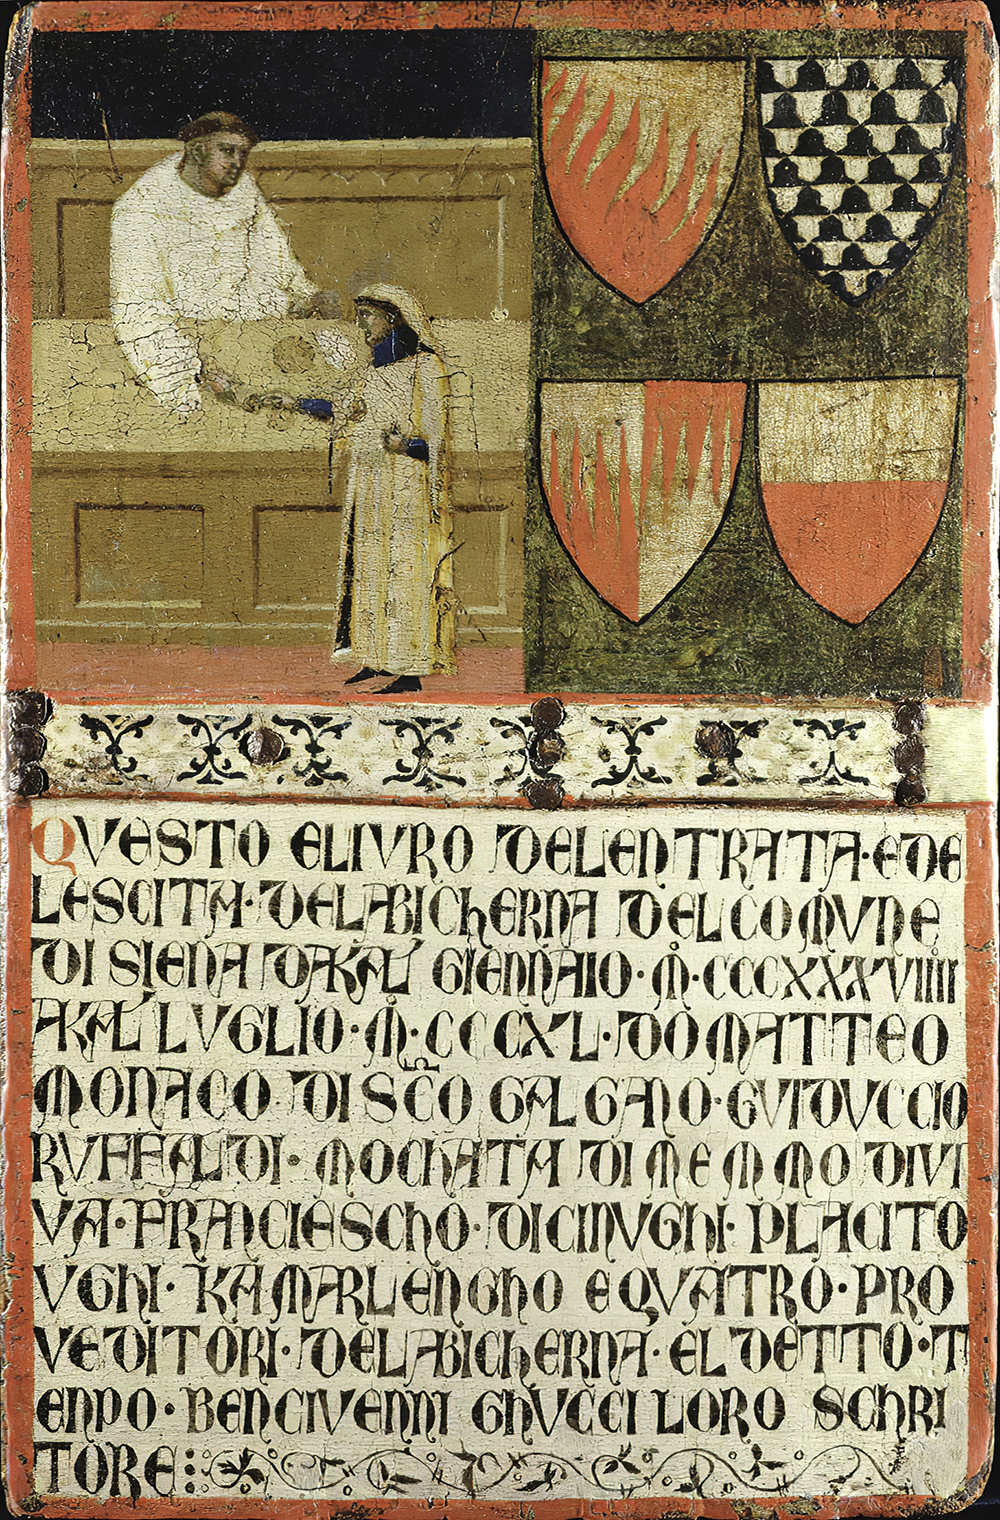 QVESTO ELIVRO DELENTRATA·EDE
LESCITA·DELABICHERNA DELCOMVNE
DI SIENA DAKAL' GIENNAIO·M̊·CCCXXXVIIII
AKAL' LVGLIO·M̊·CCCXL·DŌ MATTEO
MONACO DI SC̄O GALGANO·GVIDVCCIO
RVFFALDI·MOCHATA DI MEMMO DIVI
VA·FRANCIESCHO·DICINVGHI·PLACITO
VGHI·KAMARLENGHO E QVATRO·PRO
VEDITORI·DELABICHERNA·EL DETTO·T
ENPO·BENCIVENNI GHVCCI LORO SCHRI
TORE: